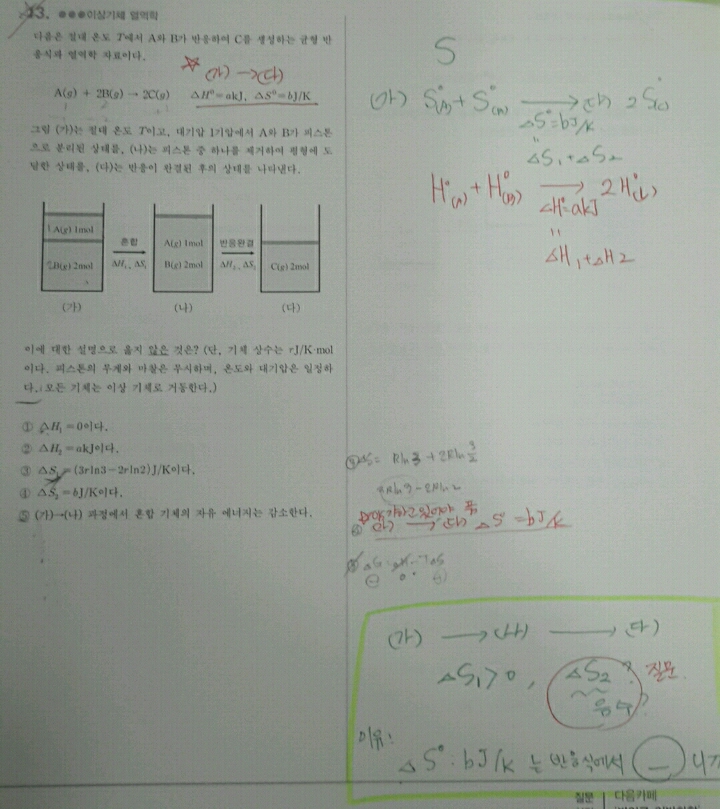 13. ●●●이상기체 열역학
다음은 절대 온도 T에서 A와 B가 반응하여 C를 생성하는 균형 반
응식과 열역학 자료이다.
☆ (가) → (다)
A(g) + 2B(g) → 2C(g) ΔH°=akJ, ΔS°=bJ/K
그림 (가)는 절대 온도 T이고, 대기압 1기압에서 A와 B가 피스톤
으로 분리된 상태를, (나)는 피스톤 중 하나를 제거하여 평형에 도
달한 상태를, (다)는 반응이 완결된 후의 상태를 나타낸다.
A(g) 1mol
B(g) 2mol
혼합
ΔH₁, ΔS₁
A(g) 1mol
B(g) 2mol
반응완결
ΔH₂, ΔS₂
C(g) 2mol
(가)
(나)
(다)
이에 대한 설명으로 옳지 않은 것은? (단, 기체 상수는 rJ/K·mol
이다. 피스톤의 무게와 마찰은 무시하며, 온도와 대기압은 일정하
다. 모든 기체는 이상 기체로 거동한다.)
① ΔH₁=0이다.
② ΔH₂=akJ이다.
③ ΔS₁=(3rln3-2rln2)J/K이다.
④ ΔS₂=bJ/K이다.
⑤ (가)→(나) 과정에서 혼합 기체의 자유 에너지는 감소한다.
S
(가) S°(A) + S°(B) → (다) 2S°(C)
ΔS°=bJ/K
"
ΔS₁+ΔS₂
H°(A) + H°(B) → 2H°(C)
ΔH°=akJ
"
ΔH₁+ΔH₂
③ ΔS₁= Rln3 + 2Rln 3/2
3Rln3-2Rln2
→ (다) ΔS°=bJ/K
(가) → (나) → (다)
ΔS₁>0, ΔS₂? 질문
음수?
이유:
ΔS°: bJ/K 는 반응식에서
질문 | 다음카페